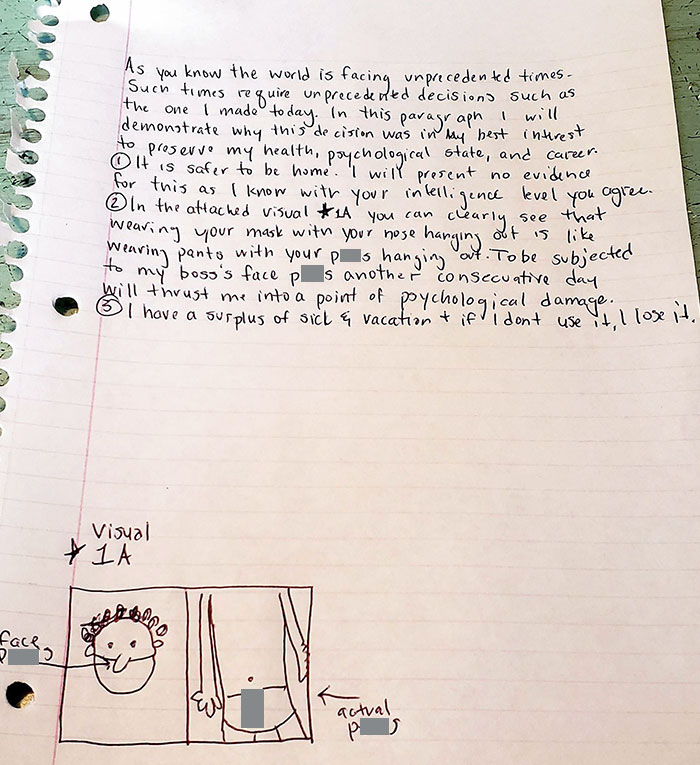 As you know the world is facing unprecedented times.
Such times require unprecedented decisions such as
the one I made today. In this paragraph I will
demonstrate why this decision was in my best intrest
to preserve my health, psychological state, and career.
① It is safer to be home. I will present no evidence
for this as I know with your intelligence level you agree.
② In the attached visual ★1A you can clearly see that
wearing your mask with your nose hanging out is like
wearing pants with your p s hanging out. To be subjected
to my boss's face p s another consecuative day
will thrust me into a point of psychological damage.
③ I have a surplus of sick & vacation + if I dont use it, I lose it.
Visual
★ 1A
face
p s
actual
p s